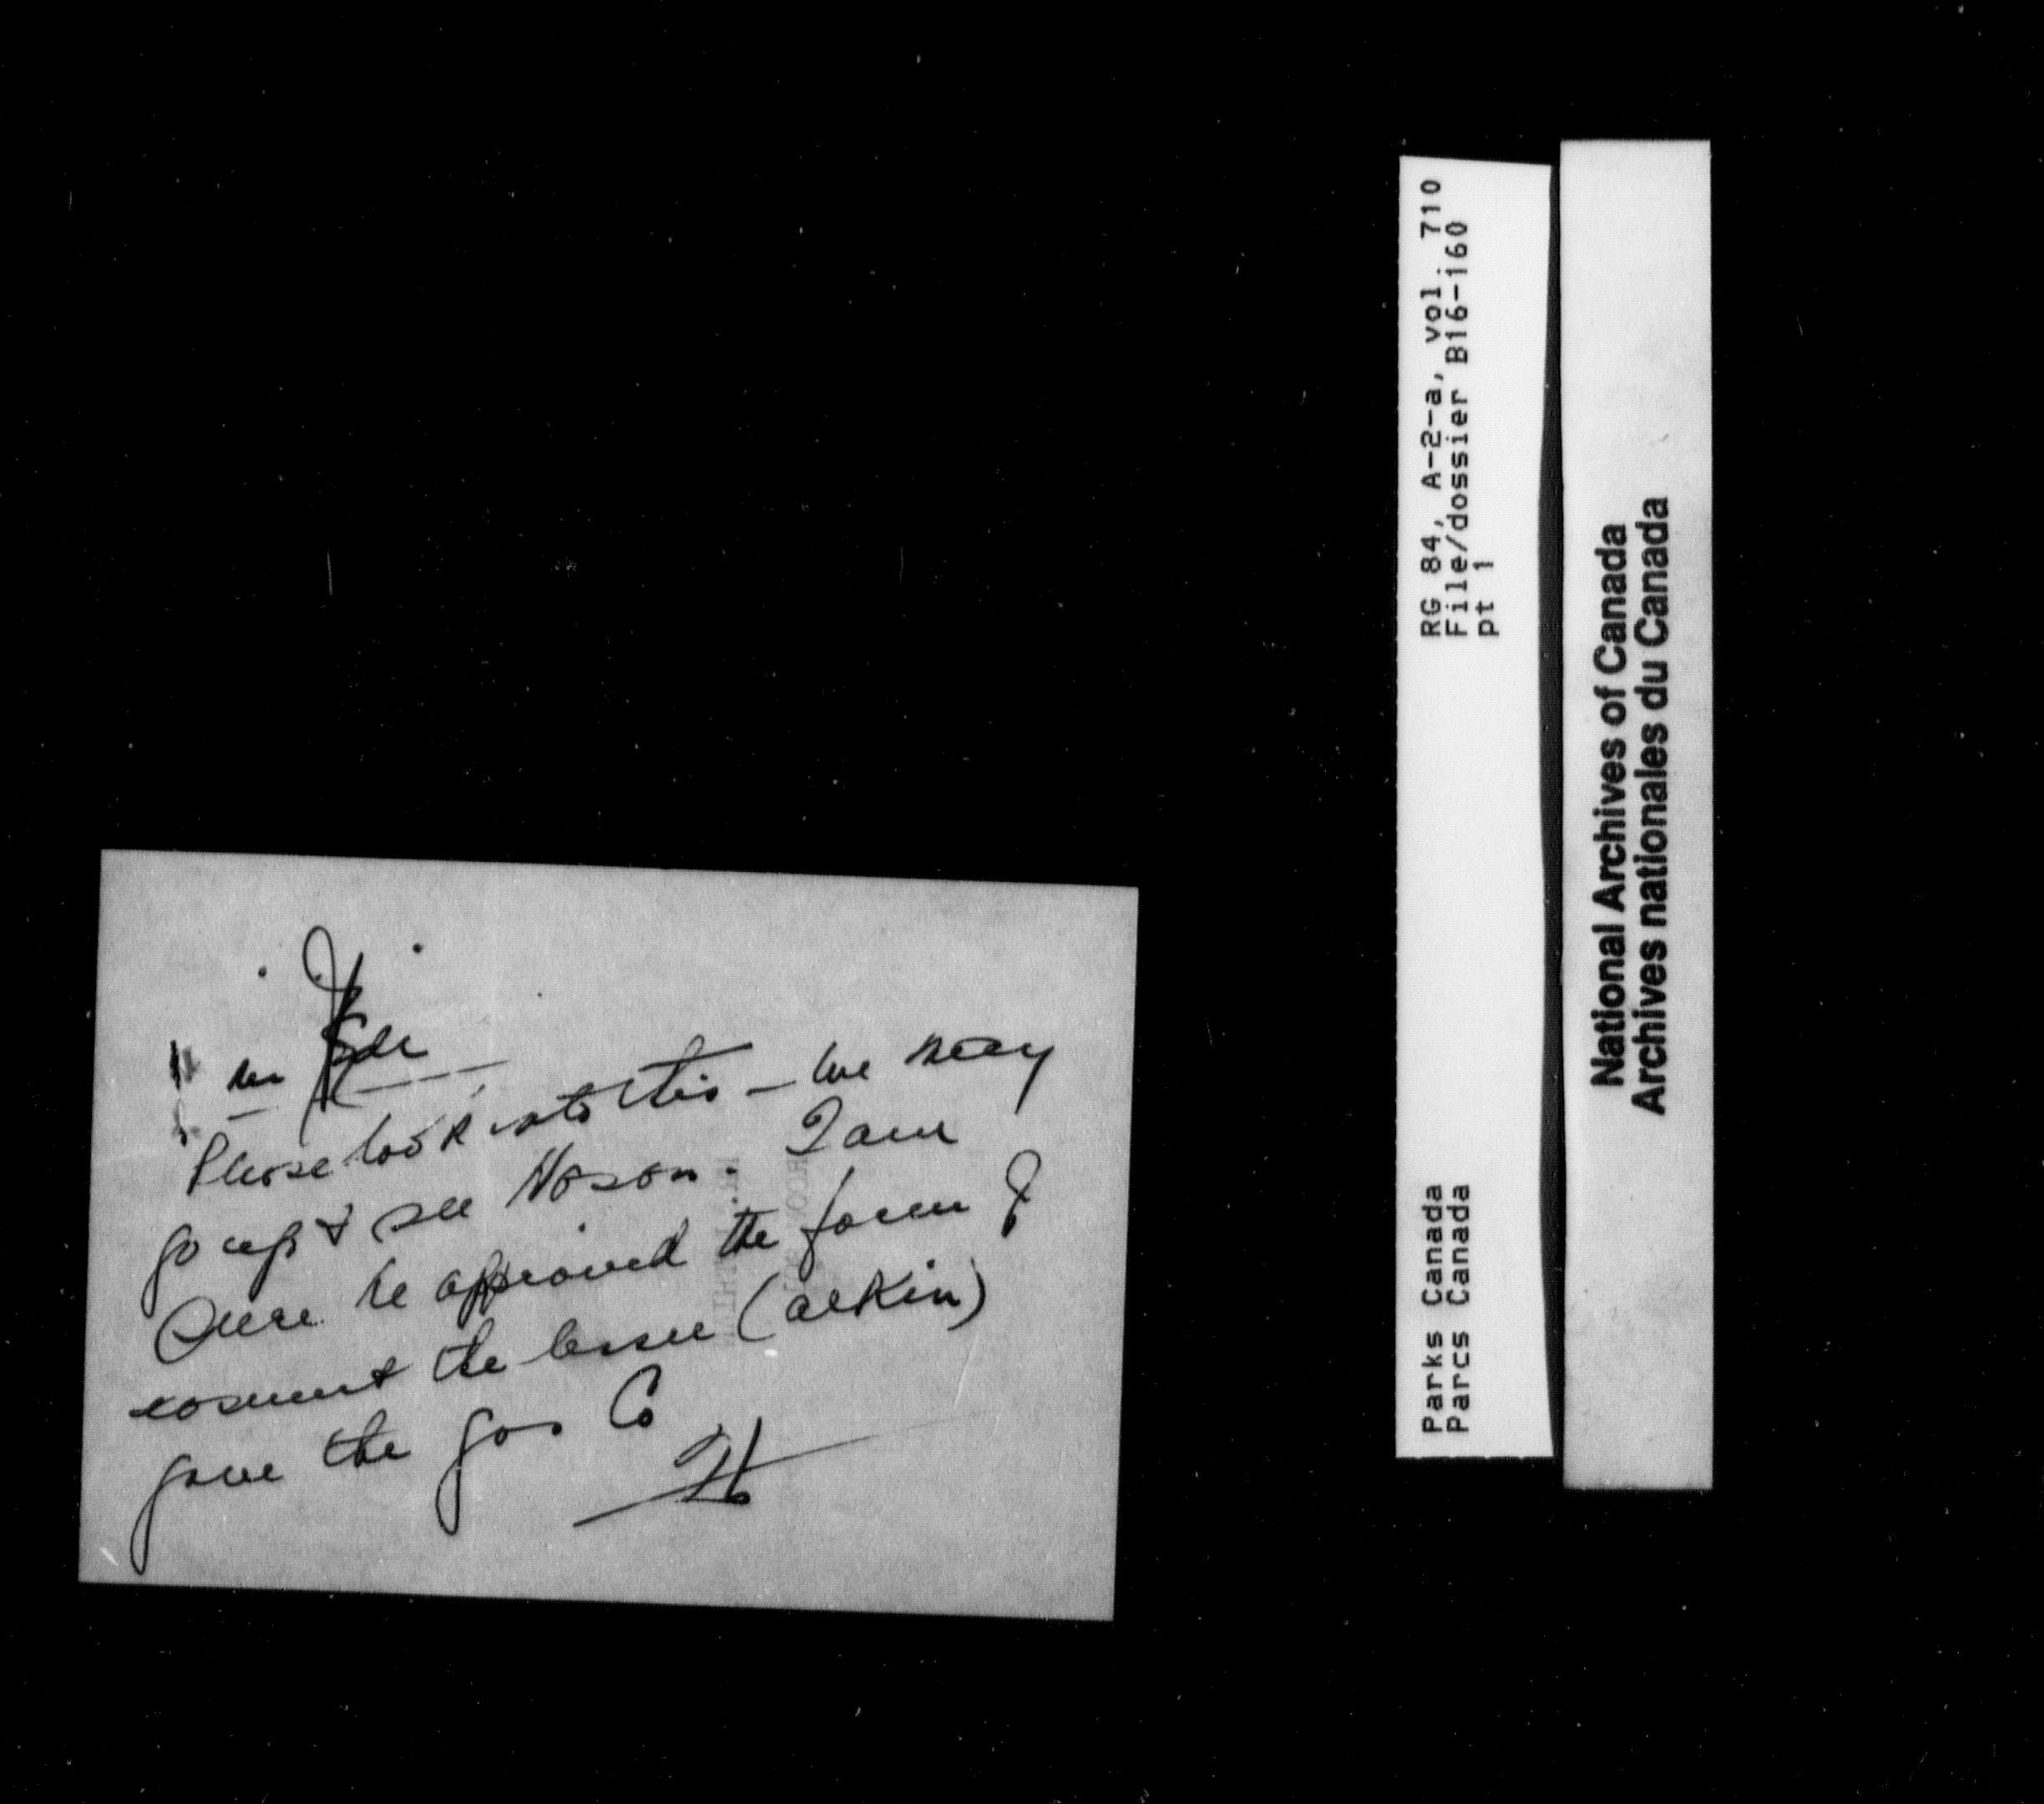 Please look into this - we may
go up & see Hoson. I am
sure he approved the form of
easement the lessee (Atkin)
gave the gas Co
RG 84, A-2-a, vol. 710
File/dossier B16-160
pt 1
Parks Canada
Parcs Canada
National Archives of Canada
Archives nationales du Canada